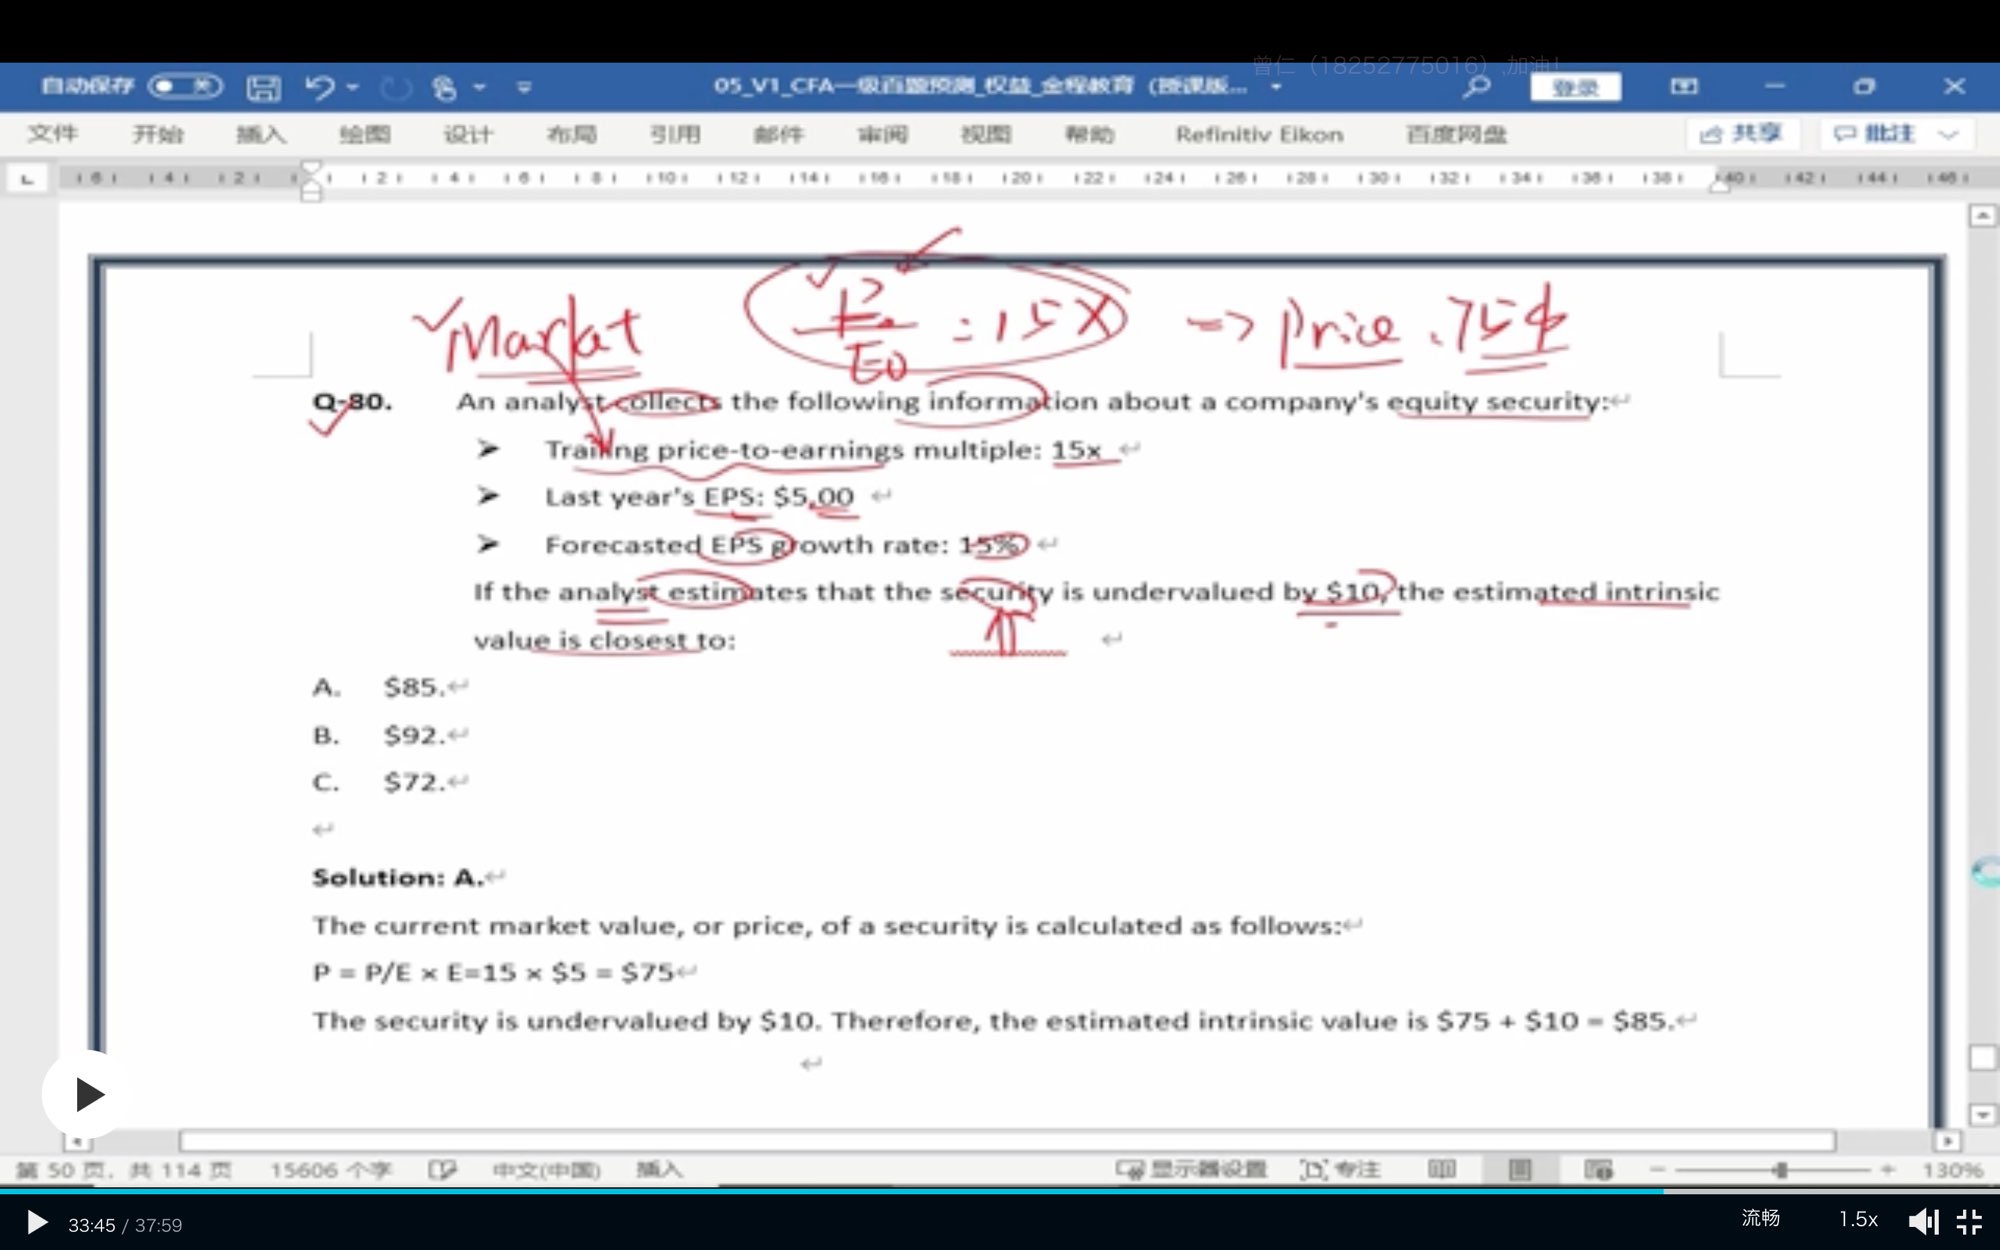 曾仁（18252775016）,加油！
自动保存 05_V1_CFA一级百题预测_权益_金程教育（授课版... 登录
文件 开始 插入 绘图 设计 布局 引用 邮件 审阅 视图 帮助 Refinitiv Eikon 百度网盘 共享 批注
6 4 2 2 4 6 8 10 12 14 16 18 20 22 24 26 28 30 32 34 36 38 40 42 44 46
Market P₀/E0 = 15X => Price . 75$
Q-80. An analyst collects the following information about a company's equity security:
Trailing price-to-earnings multiple: 15x
Last year's EPS: $5.00
Forecasted EPS growth rate: 15%
If the analyst estimates that the security is undervalued by $10, the estimated intrinsic
value is closest to:
A. $85.
B. $92.
C. $72.
Solution: A.
The current market value, or price, of a security is calculated as follows:
P = P/E × E=15 × $5 = $75
The security is undervalued by $10. Therefore, the estimated intrinsic value is $75 + $10 = $85.
第 50 页，共 114 页 15606 个字 中文(中国) 插入 显示器设置 专注 130%
33:45 / 37:59 流畅 1.5x